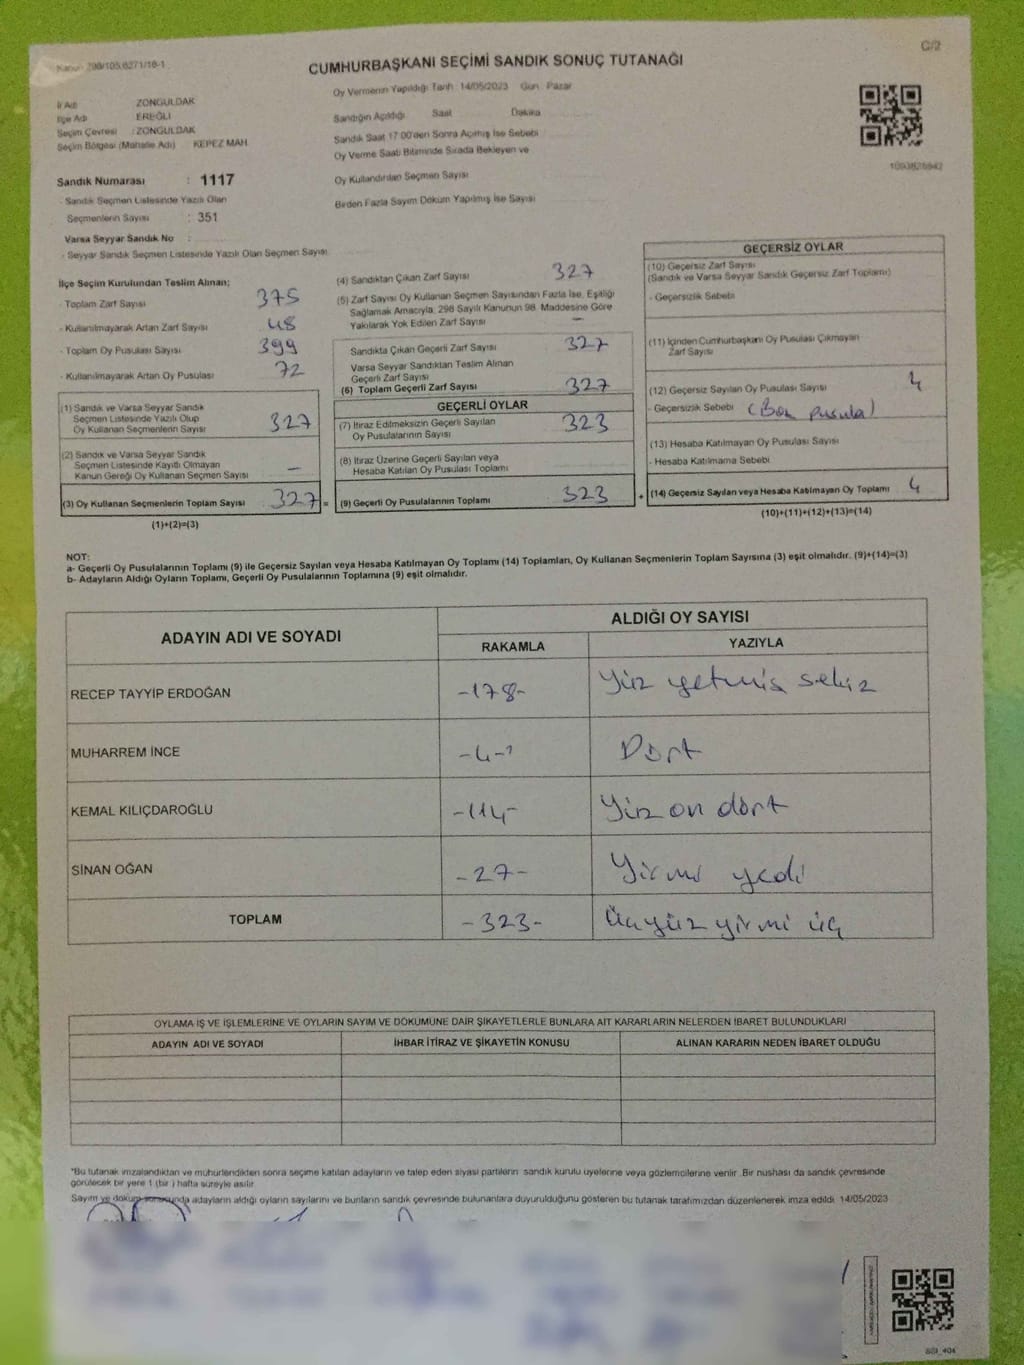 Kanun 298/105,6271/16-1
C/2
CUMHURBAŞKANI SEÇİMİ SANDIK SONUÇ TUTANAĞI
Oy Vermenin Yapıldığı Tarih : 14/05/2023 Gün : Pazar
İl Adı ZONGULDAK
İlçe Adı EREĞLİ
Seçim Çevresi : ZONGULDAK
Seçim Bölgesi (Mahalle Adı) KEPEZ MAH.
Sandığın Açıldığı Saat Dakika
Sandık Saat 17:00'den Sonra Açılmış İse Sebebi
Oy Verme Saati Bitiminde Sırada Bekleyen ve
Oy Kullandırılan Seçmen Sayısı
Birden Fazla Sayım Döküm Yapılmış İse Sayısı
Sandık Numarası : 1117
- Sandık Seçmen Listesinde Yazılı Olan
Seçmenlerin Sayısı : 351
Varsa Seyyar Sandık No :
- Seyyar Sandık Seçmen Listesinde Yazılı Olan Seçmen Sayısı
İlçe Seçim Kurulundan Teslim Alınan;
- Toplam Zarf Sayısı 375
- Kullanılmayarak Artan Zarf Sayısı 48
- Toplam Oy Pusulası Sayısı 399
- Kullanılmayarak Artan Oy Pusulası 72
(1) Sandık ve Varsa Seyyar Sandık
Seçmen Listesinde Yazılı Olup
Oy Kullanan Seçmenlerin Sayısı 327
(2) Sandık ve Varsa Seyyar Sandık
Seçmen Listesinde Kayıtlı Olmayan
Kanun Gereği Oy Kullanan Seçmen Sayısı –
(3) Oy Kullanan Seçmenlerin Toplam Sayısı 327 =
(1)+(2)=(3)
(4) Sandıktan Çıkan Zarf Sayısı 327
(5) Zarf Sayısı Oy Kullanan Seçmen Sayısından Fazla İse, Eşitliği
Sağlamak Amacıyla, 298 Sayılı Kanunun 98. Maddesine Göre
Yakılarak Yok Edilen Zarf Sayısı –
Sandıkta Çıkan Geçerli Zarf Sayısı 327
Varsa Seyyar Sandıktan Teslim Alınan
Geçerli Zarf Sayısı
(6) Toplam Geçerli Zarf Sayısı 327
GEÇERLİ OYLAR
(7) İtiraz Edilmeksizin Geçerli Sayılan
Oy Pusulalarının Sayısı 323
(8) İtiraz Üzerine Geçerli Sayılan veya
Hesaba Katılan Oy Pusulası Toplamı
(9) Geçerli Oy Pusulalarının Toplamı 323 +
GEÇERSİZ OYLAR
(10) Geçersiz Zarf Sayısı
(Sandık ve Varsa Seyyar Sandık Geçersiz Zarf Toplamı)
- Geçersizlik Sebebi
(11) İçinden Cumhurbaşkanı Oy Pusulası Çıkmayan
Zarf Sayısı
(12) Geçersiz Sayılan Oy Pusulası Sayısı 4
- Geçersizlik Sebebi (Boş pusula)
(13) Hesaba Katılmayan Oy Pusulası Sayısı
- Hesaba Katılmama Sebebi
(14) Geçersiz Sayılan veya Hesaba Katılmayan Oy Toplamı 4
(10)+(11)+(12)+(13)=(14)
NOT:
a- Geçerli Oy Pusulalarının Toplamı (9) ile Geçersiz Sayılan veya Hesaba Katılmayan Oy Toplamı (14) Toplamları, Oy Kullanan Seçmenlerin Toplam Sayısına (3) eşit olmalıdır. (9)+(14)=(3)
b- Adayların Aldığı Oyların Toplamı, Geçerli Oy Pusulalarının Toplamına (9) eşit olmalıdır.
ADAYIN ADI VE SOYADI
ALDIĞI OY SAYISI
RAKAMLA YAZIYLA
RECEP TAYYİP ERDOĞAN -178- Yüz yetmiş sekiz
MUHARREM İNCE -4- Dört
KEMAL KILIÇDAROĞLU -114- Yüz on dört
SİNAN OĞAN -27- Yirmi yedi
TOPLAM -323- Üçyüz yirmi üç
OYLAMA İŞ VE İŞLEMLERİNE VE OYLARIN SAYIM VE DÖKÜMÜNE DAİR ŞİKAYETLERLE BUNLARA AİT KARARLARIN NELERDEN İBARET BULUNDUKLARI
ADAYIN ADI VE SOYADI İHBAR İTİRAZ VE ŞİKAYETİN KONUSU ALINAN KARARIN NEDEN İBARET OLDUĞU
*Bu tutanak imzalandıktan ve mühürlendikten sonra seçime katılan adayların ve talep eden siyasi partilerin sandık kurulu üyelerine veya gözlemcilerine verilir. Bir nüshası da sandık çevresinde
görülecek bir yere 1 (bir) hafta süreyle asılır.
Sayım ve döküm sonucunda adayların aldığı oyların sayılarını ve bunların sandık çevresinde bulunanlara duyurulduğunu gösteren bu tutanak tarafımızdan düzenlenerek imza edildi. 14/05/2023